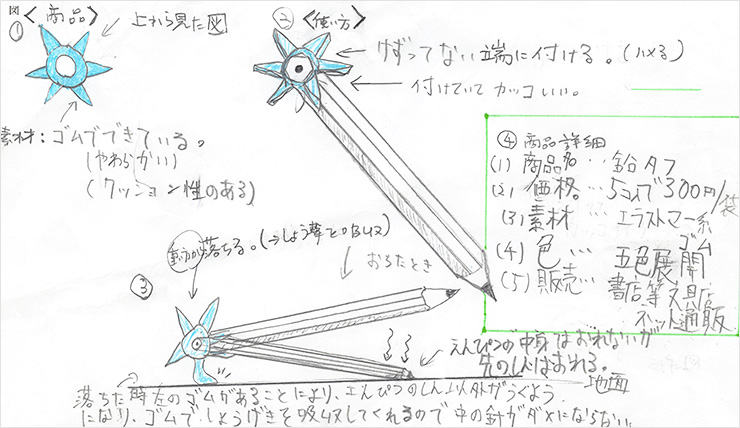 図① 〈商品〉
上から見た図
素材：ゴムでできている。
(やわらかい)
(クッション性のある)
② 〈使い方〉
けずってない端に付ける。(ハメる)
付けていて カッコいい。
④ 商品詳細
(1) 商品名…鉛タフ
(2) 価格…5コ入で300円/袋
(3) 素材 …エラストマー系
ゴム
(4) 色 … 五色展開
(5) 販売… 書店等文具店
ネット通販
③
落ちる。(⇒しょう撃を吸収)
おちたとき
えんぴつの中身はおれないが
先のしんはおれる。
地面
落ちた時左のゴムがあることにより、えんぴつのしん以外がうくよう
になり、ゴムでしょうげきを吸収してくれるので中の針がダメにならない。